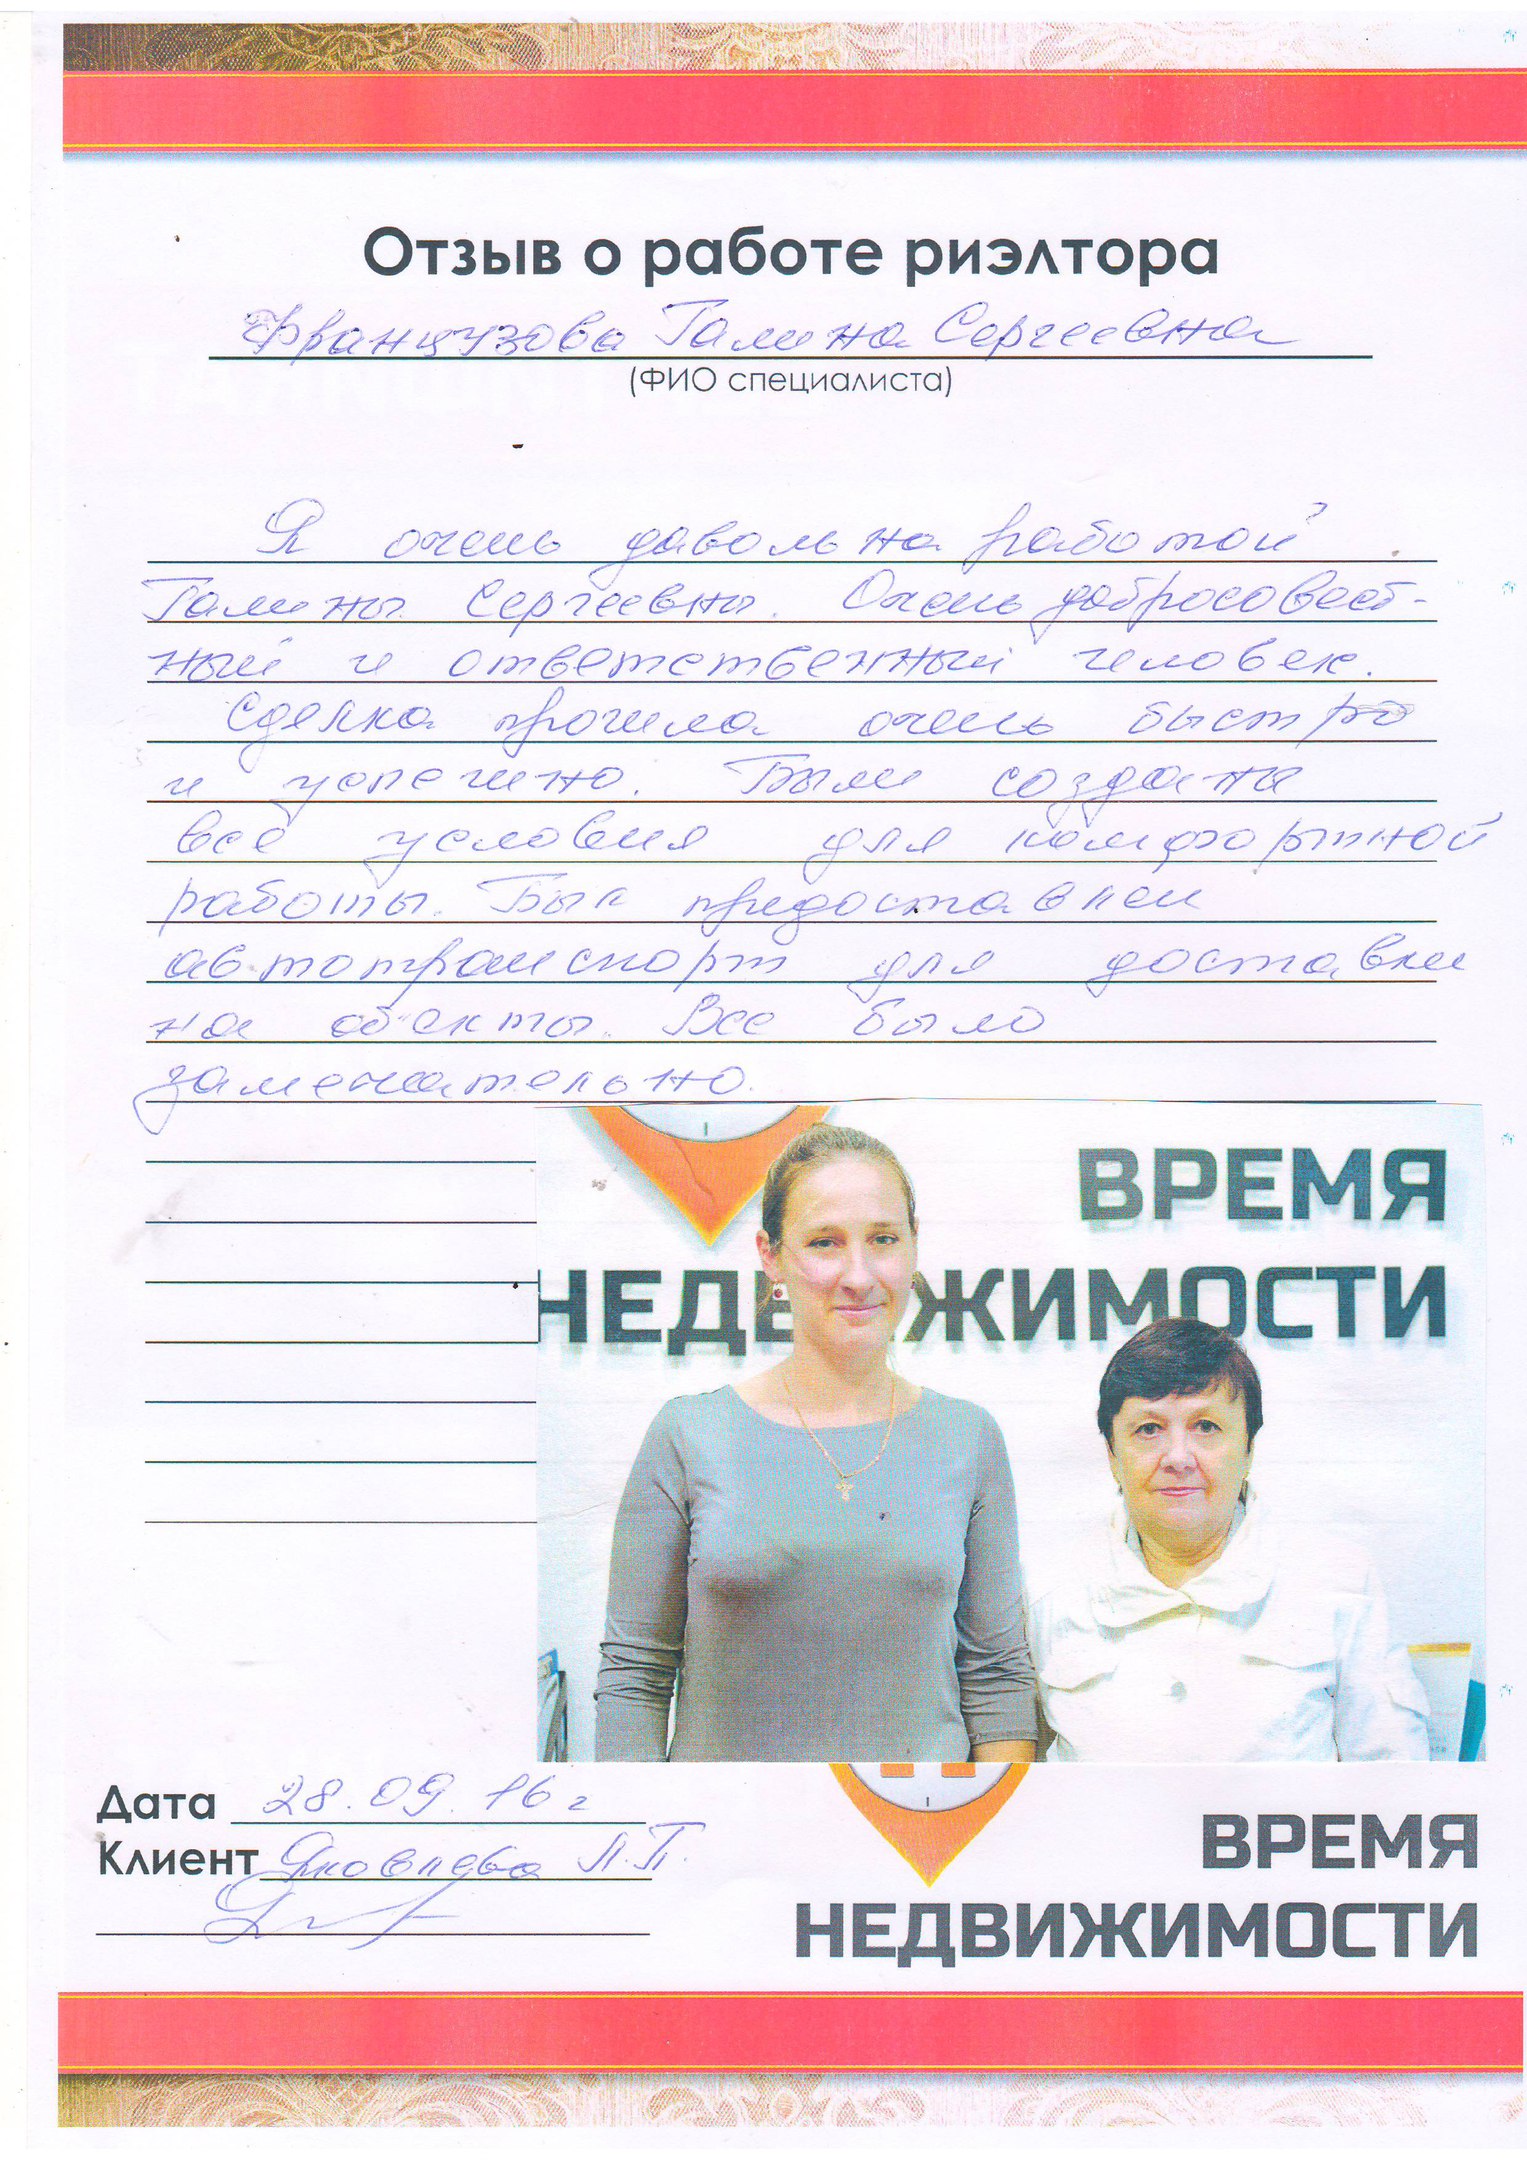 Отзыв о работе риэлтора
Французова Галина Сергеевна
(ФИО специалиста)
Я очень давольна работой
Галины Сергеевны. Очень добросовест-
ный и ответственный человек.
Сделка прошла очень быстро
и успешно. Были созданы
все условия для комфортной
работы. Был предоставлен
автотранспорт для доставки
на объекты. Все было
замечательно.
ВРЕМЯ
НЕДВИЖИМОСТИ
Дата 28.09.16 г
Клиент Яковлева Л.П.
ВРЕМЯ
НЕДВИЖИМОСТИ